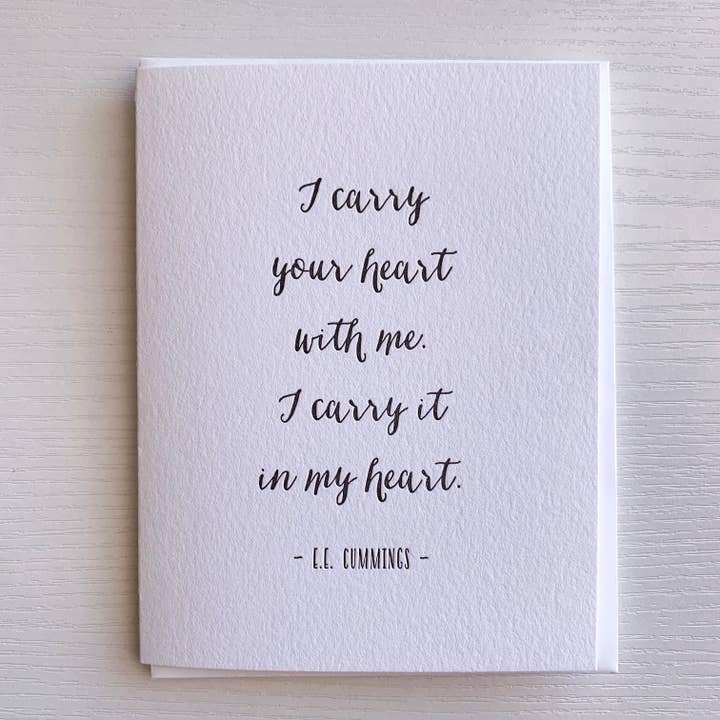 I carry
your heart
with me.
I carry it
in my heart.
- E.E. CUMMINGS -